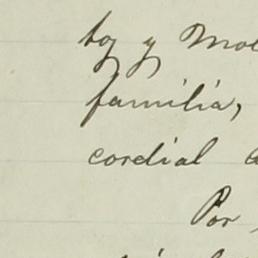 toy y
familia,
cordial
Por